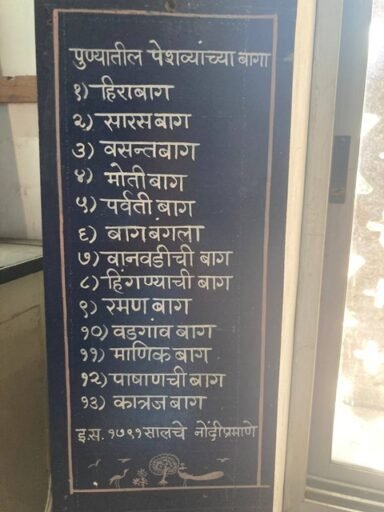 पुण्यातील पेशव्यांच्या बागा
१) हिराबाग
२) सारसबाग
३) वसन्तबाग
४) मोतीबाग
५) पर्वती बाग
६) बागबंगला
७) वानवडीची बाग
८) हिंगण्याची बाग
९) रमण बाग
१०) वडगांव बाग
११) माणिक बाग
१२) पाषाणची बाग
१३) कात्रज बाग
इ.स. १७९१ सालचे नोंदीप्रमाणे